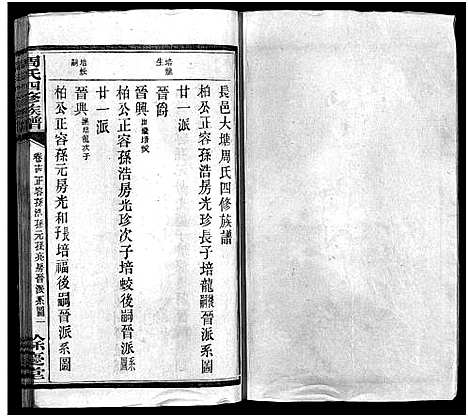 長邑大塘周氏四修族譜
柏公正容孫浩房光珍長子培龍嗣晉派系圖
廿一派
晉爵 培龍生
柏公正容孫浩房光珍次子培蛟後嗣晉派系圖
廿一派
晉興 培龍次子 培蛟嗣
柏公正容孫元房光和長子培福後嗣晉派系圖
周氏四修族譜
正容孫浩孫元孫亮房晉派系圖